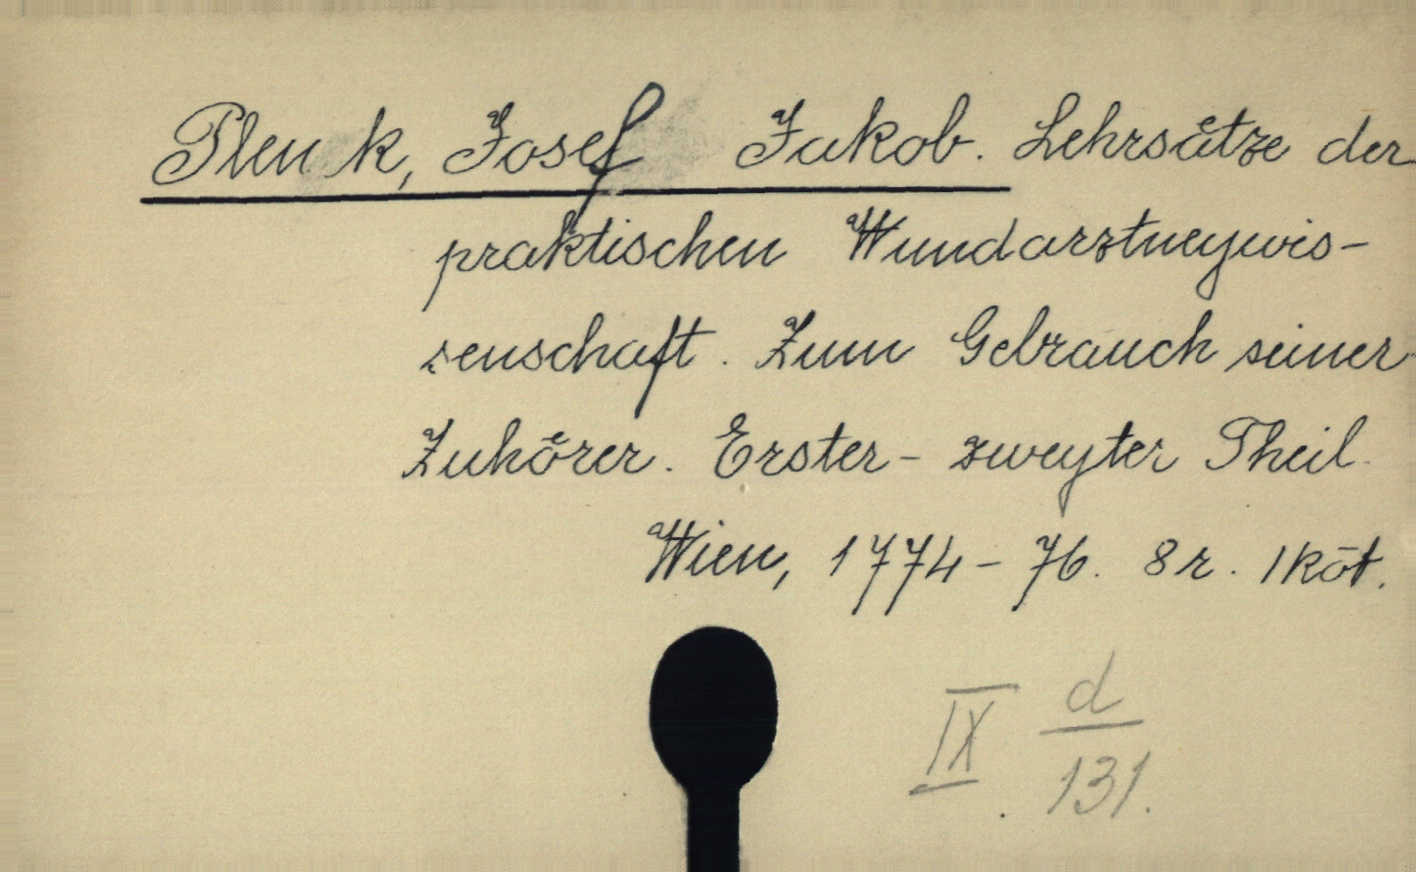 Plenk, Josef Jakob. Lehrsätze der
praktischen Wundarztneywis-
senschaft. Zum Gebrauch seiner
Zuhörer. Erster- zweyter Theil.
Wien, 1774-76. 8r. 1 köt.
IX. d/131.